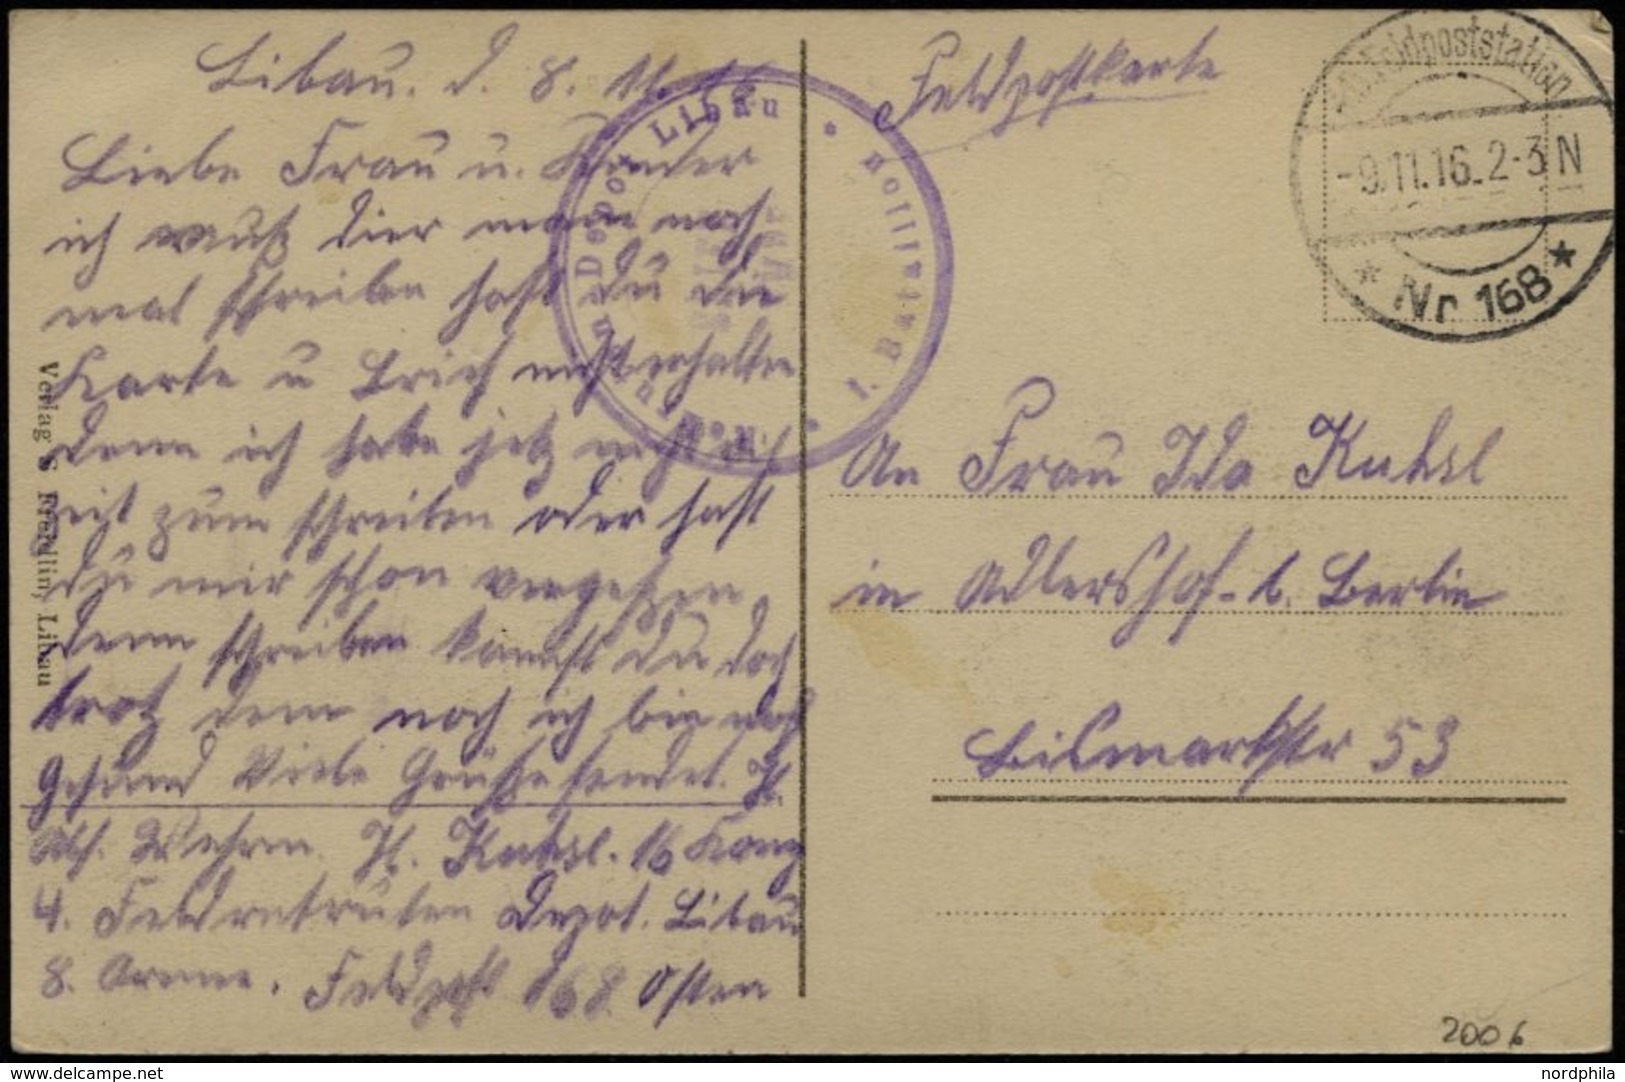 Libau. d. 8. 11. 16
Liebe Frau u. Kinder
ich muß dier man noch
mal schreiben hast du die
Karte u Brief nicht erhalten
denn ich habe jetz nicht die
zeit zum schreiben oder hast
du mir schon vergeßen
denn schreiben kannst du doch
trotz dem noch ich bin noch
Gesund Viele Grüße sendet. H.
Abs. Wehrm. H. Kuhsl. 16 Komp
4. Feldretruten Depot. Libau
8. Armee. Feldpost 168 Osten
Verlag S Fredlin, Libau
Depot Libau
I. Bat.
Feldpostkarte
Feldpoststation
-9.11.16. 2-3 N
* Nr 168 *
An Frau Ida Kuhsl
in Adlershof - b. Berlin
Bismarkstr 53
2006
delcampe.net
nordphila